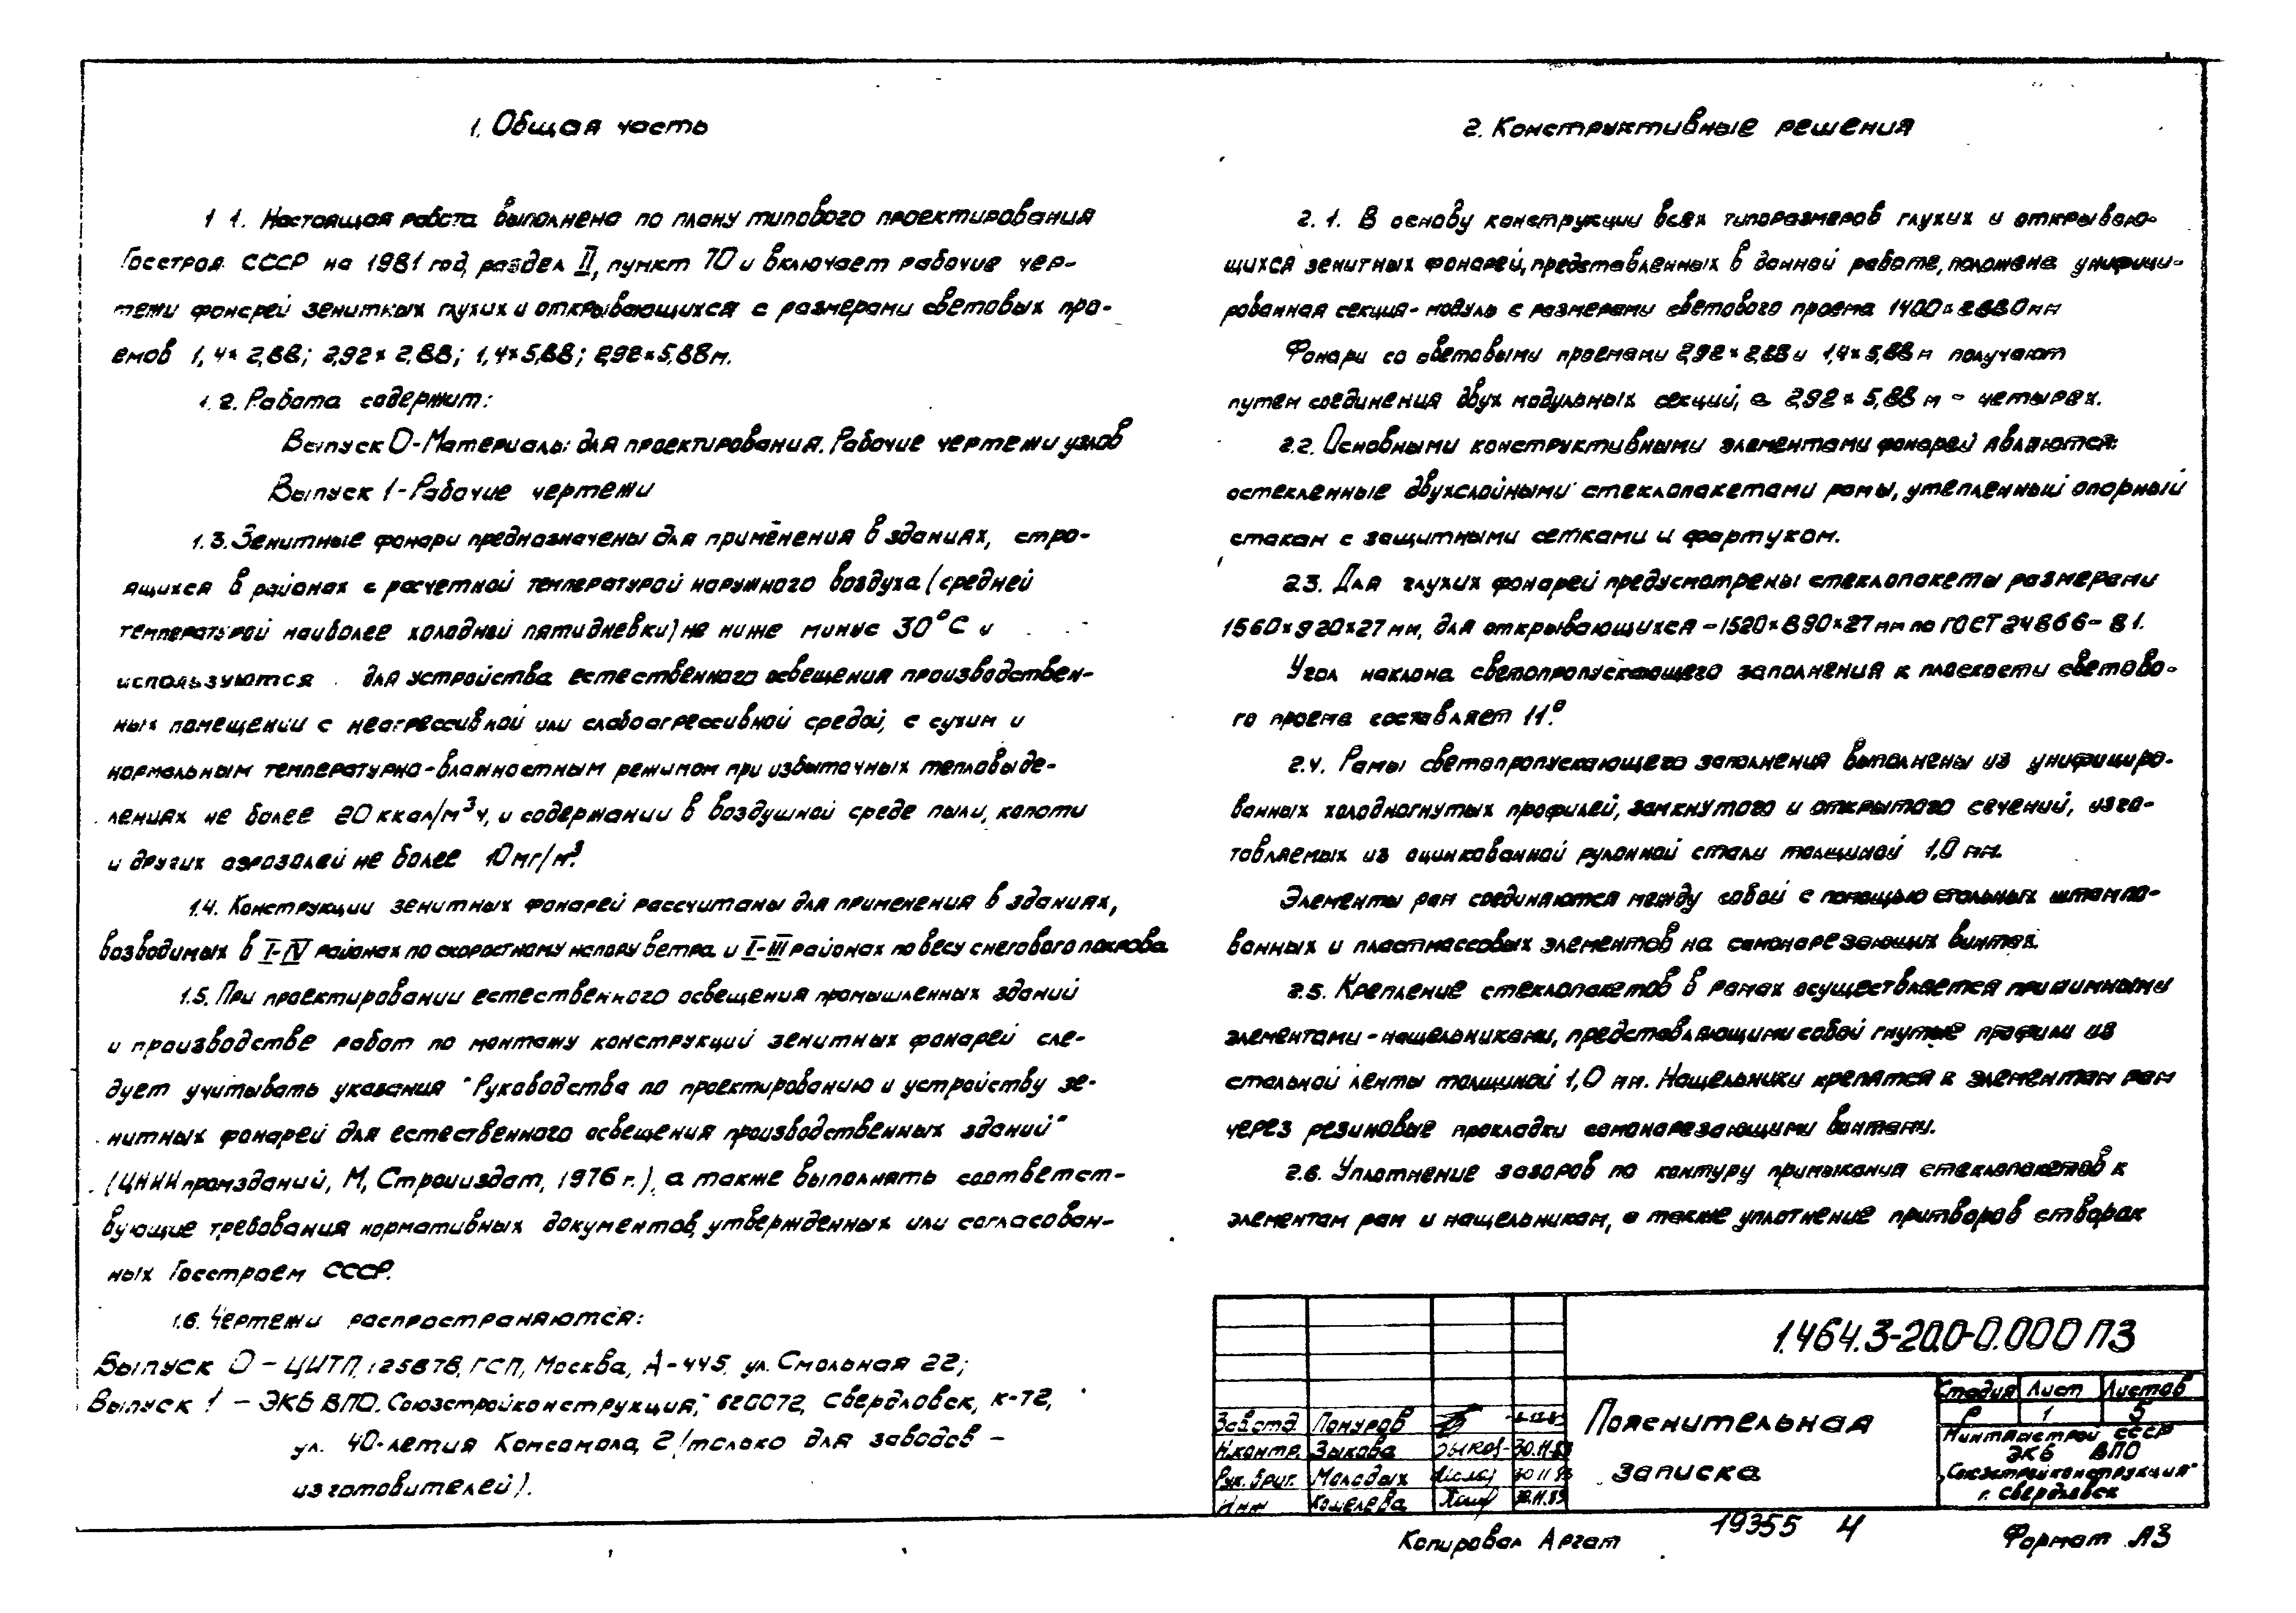 1. Общая часть
1 1. Настоящая работа выполнена по плану типового проектирования
Госстроя СССР на 1981 год, раздел II, пункт 70 и включает рабочие чер-
тежи фонарей зенитных глухих и открывающихся с размерами световых про-
емов 1,4×2,88; 2,92×2,88; 1,4×5,88; 2,92×5,88м.
1.2. Работа содержит:
Выпуск 0-Материалы для проектирования. Рабочие чертежи узлов
Выпуск 1-Рабочие чертежи
1.3. Зенитные фонари предназначены для применения в зданиях, стро-
ящихся в районах с расчетной температурой наружного воздуха (средней
температурой наиболее холодной пятидневки) не ниже минус 30°С и
используются для устройства естественного освещения производствен-
ных помещений с неагрессивной или слабоагрессивной средой, с сухим и
нормальным температурно-влажностным режимом при избыточных тепловыде-
лениях не более 20 ккал/м³ч, и содержании в воздушной среде пыли, копоти
и других аэрозолей не более 10мг/м³.
1.4. Конструкции зенитных фонарей рассчитаны для применения в зданиях,
возводимых в I-IV районах по скоростному напору ветра и I-III районах по весу снегового покрова
1.5. При проектировании естественного освещения промышленных зданий
и производстве работ по монтажу конструкций зенитных фонарей сле-
дует учитывать указания "Руководства по проектированию и устройству зе-
нитных фонарей для естественного освещения производственных зданий"
(ЦНИИпромзданий, М, Стройиздат, 1976 г.), а также выполнять соответст-
вующие требования нормативных документов, утвержденных или согласован-
ных Госстроем СССР.
1.6. Чертежи распространяются:
Выпуск 0 – ЦИТП, 125878, ГСП, Москва, А-445, ул. Смольная 22;
Выпуск 1 – ЭКБ ВПО "Союзстройконструкция", 620072, Свердловск, к-72,
ул. 40-летия Комсомола, 2 (только для заводов –
изготовителей).
2. Конструктивные решения
2. 1. В основу конструкции всех типоразмеров глухих и открываю-
щихся зенитных фонарей, представленных в данной работе, положена унифици-
рованная секция-модуль с размерами светового проема 1400×2880мм
Фонари со световыми проемами 2,92×2,88 и 1,4×5,88 м получают
путем соединения двух модульных секций, а 2,92×5,88 м – четырех.
2.2. Основными конструктивными элементами фонарей являются:
остекленные двухслойными стеклопакетами рамы, утепленный опорный
стакан с защитными сетками и фартуком.
2.3. Для глухих фонарей предусмотрены стеклопакеты размерами
1560×920×27мм, для открывающихся – 1520×890×27мм по ГОСТ 24866-81.
Угол наклона светопропускающего заполнения к плоскости светово-
го проема составляет 11°.
2.4. Рамы светопропускающего заполнения выполнены из унифициро-
ванных холодногнутых профилей, замкнутого и открытого сечений, изго-
товляемых из оцинкованной рулонной стали толщиной 1,0 мм.
Элементы рам соединяются между собой с помощью стальных штампо-
ванных и пластмассовых элементов на самонарезающих винтах.
2.5. Крепление стеклопакетов в рамах осуществляется прижимными
элементами-нащельниками, представляющими собой гнутые профили из
стальной ленты толщиной 1,0 мм. Нащельники крепятся к элементам рам
через резиновые прокладки самонарезающими винтами.
2.6. Уплотнение зазоров по контуру примыкания стеклопакетов к
элементам рам и нащельникам, а также уплотнение притворов створок
1.464.3-20.0-0.000 ПЗ
Пояснительная
записка
Стадия Лист Листов
Р 1 5
Минтяжстрой СССР
ЭКБ ВПО
"Союзстройконструкция"
г. Свердловск
Зав отд Помуров
Н.контр. Зыкова 30.11.83
Рук. бриг. Молодых 30 11 83
Инж Кошелева 30.11.83
Копировал Аргат 19355 4 Формат А3